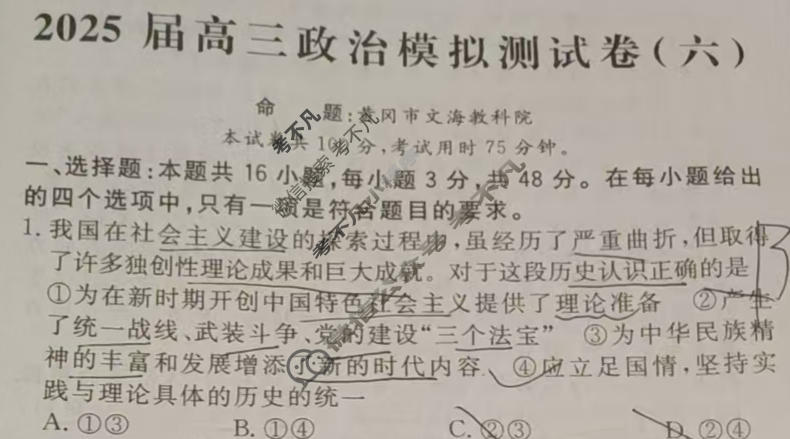 2025届高三政治模拟测试卷(六)
命 题:黄冈市文海教科院
本试卷共100分,考试用时75分钟。
一、选择题:本题共16小题,每小题3分,共48分。在每小题给出
的四个选项中,只有一项是符合题目的要求。
1. 我国在社会主义建设的探索过程中,虽经历了严重曲折,但取得
了许多独创性理论成果和巨大成就。对于这段历史认识正确的是
①为在新时期开创中国特色社会主义提供了理论准备 ②产生
了统一战线、武装斗争、党的建设“三个法宝” ③为中华民族精
神的丰富和发展增添了新的时代内容 ④应立足国情,坚持实
践与理论具体的历史的统一
A. ①③ B. ①④ C. ②③ D. ②④
微信搜索 考不凡
考不凡